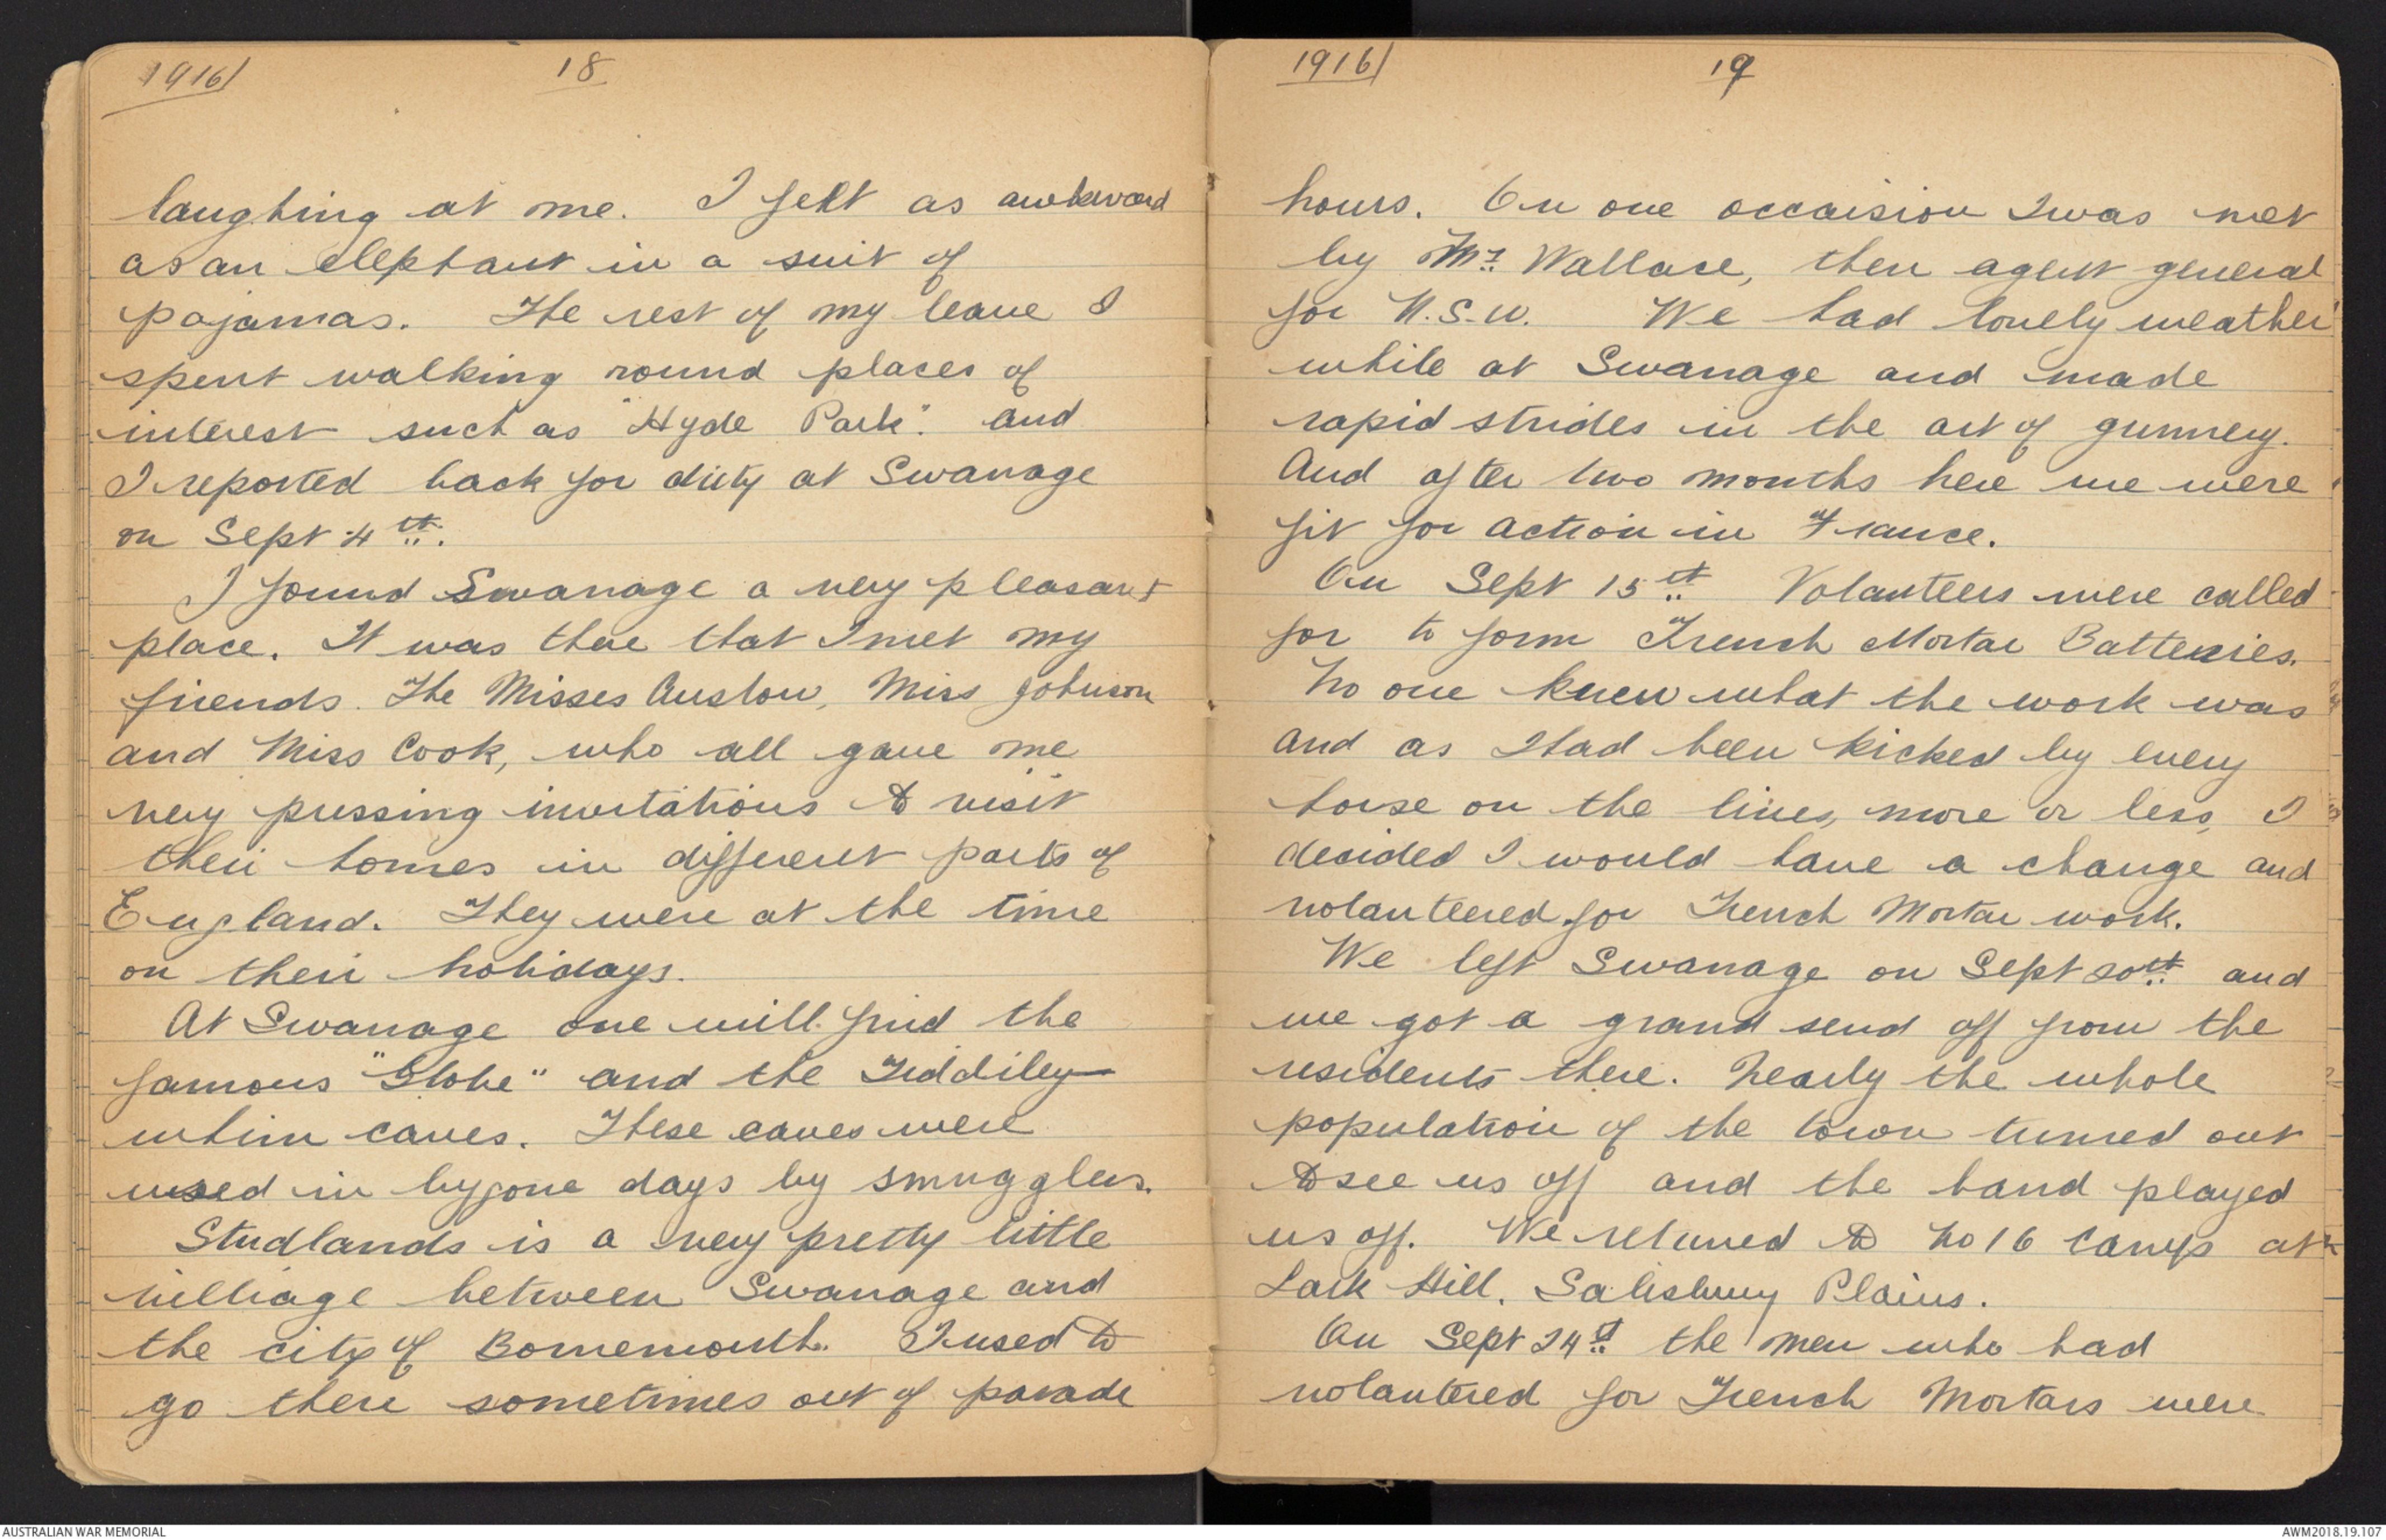 1916/ 18
laughing at me. I felt as awkward
as an elephant in a suit of
pajamas. The rest of my leave I
spent walking round places of
interest such as "Hyde Park". and
I reported back for duty at Swanage
on Sept 4th.
I found Swanage a very pleasant
place. It was there that I met my
friends. The Misses Anslow, Miss Johnson
and Miss Cook, who all gave me
very pressing invitations to visit
their homes in different parts of
England. They were at the time
on their holidays.
At Swanage one will find the
famous "Globe" and the Tiddiley
whim caves. These caves were
used in bygone days by smugglers.
Studlands is a very pretty little
villiage between Swanage and
the city of Bornemouth. I used to
go there sometimes out of parade
1916/ 19
hours. On one occaision I was met
by Mr Wallace, then agent general
for N.S.W. We had lovely weather
while at Swanage and made
rapid strides in the art of gunnery.
And after two months here we were
fit for action in France.
On Sept 15th Volanteers were called
for to form Trench Mortar Batteries.
No one knew what the work was
and as I had been kicked by every
horse on the lines, more or less, I
decided I would have a change and
volanteered for Trench Mortar work.
We left Swanage on Sept 20th and
we got a grand send off from the
residents there. Nearly the whole
population of the town turned out
to see us off and the band played
us off. We returned to No 16 Camp at
Lark Hill. Salisbury Plains.
On Sept 24th the men who had
volantered for Trench Mortars were
AUSTRALIAN WAR MEMORIAL
AWM2018.19.107